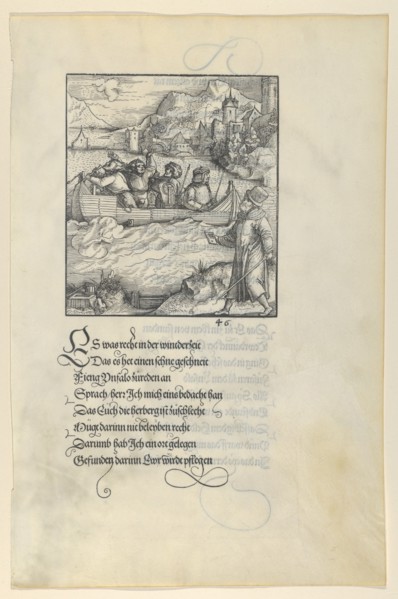 46
Es was recht in der winnder zeit
Das es het einen schne geschneit
Fieng Vnfalo zureden an
Sprach herr Ich mich eins bedacht han
Das Euch die herberg ist zuschlecht
Mugt darinn nit beleyben recht
Darumb hab Ich ein ort gelegen
Gefunden darinn Ewr wirdt pflegen